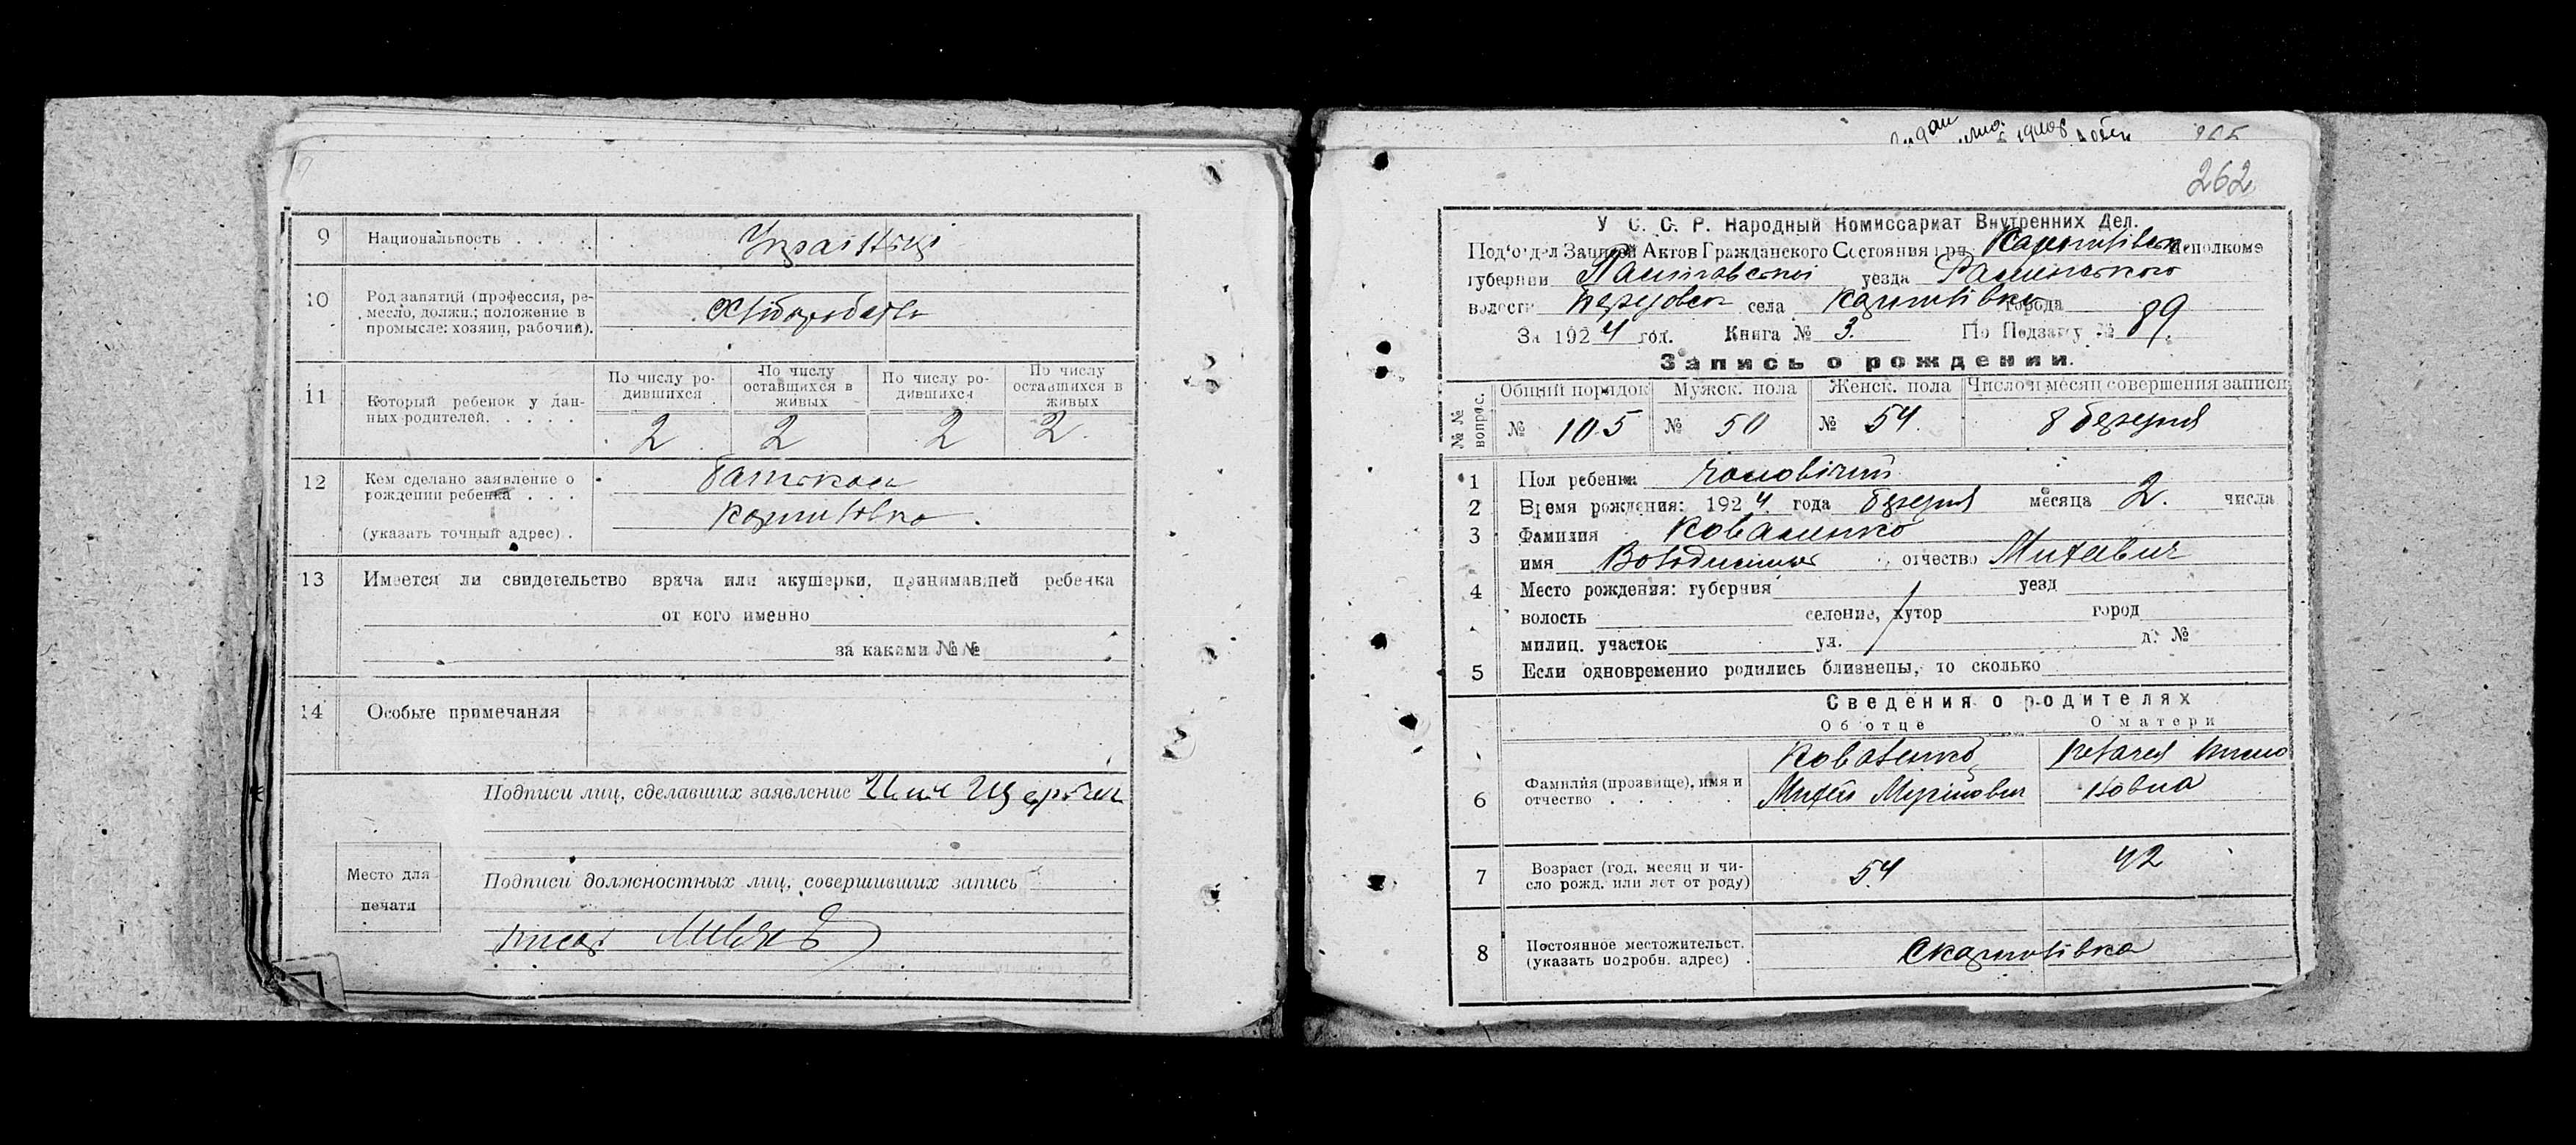 9 Национальность . . . . Українці
10 Род занятий (профессия, ре-
месло, должн.; положение в
промысле: хозяин, рабочий). Хліборобство
11 Который ребенок у дан-
ных родителей. . . . .
По числу ро-
дившихся
По числу
оставшихся в
живых
По числу ро-
дившихся
По числу
оставшихся в
живых
2 2 2 2
12 Кем сделано заявление о
рождении ребенка . . .
(указать точный адрес) .
Батьком
Картовівка.
13 Имеется ли свидетельство врача или акушерки, принимавшей ребенка
от кого именно
за какими №№
14 Особые примечания
Подписи лиц, сделавших заявление
Место для
печати
Подписи должностных лиц, совершивших запись
262
У. С. С. Р. Народный Комиссариат Внутренних Дел.
Под'отдел Записей Актов Гражданского Состояния при Исполкоме
губернии Полтавської уезда Роменського
волости села города
За 1924 год. Книга № 3. По Подзагсу № 89.
Запись о рождении.
№№ вопрос.
Общий порядок Мужск. пола Женск. пола Число и месяц совершения записи
№ 105 № 50 № 54. 8 березня
1 Пол ребенка чоловічий
2 Время рождения: 1924 года березня месяца 2. числа
3 Фамилия Коваленко
имя Володимир отчество Митевич
4 Место рождения: губерния уезд
волость селение, хутор город
милиц. участок ул. д. №
5 Если одновременно родились близнецы, то сколько
Сведения о родителях
Об отце О матери
6 Фамилия (прозвище), имя и
отчество . . . . . .
Коваленко
7 Возраст (год, месяц и чи-
сло рожд. или лет от роду)
54 42
8 Постоянное местожительст.
(указать подробн. адрес) .